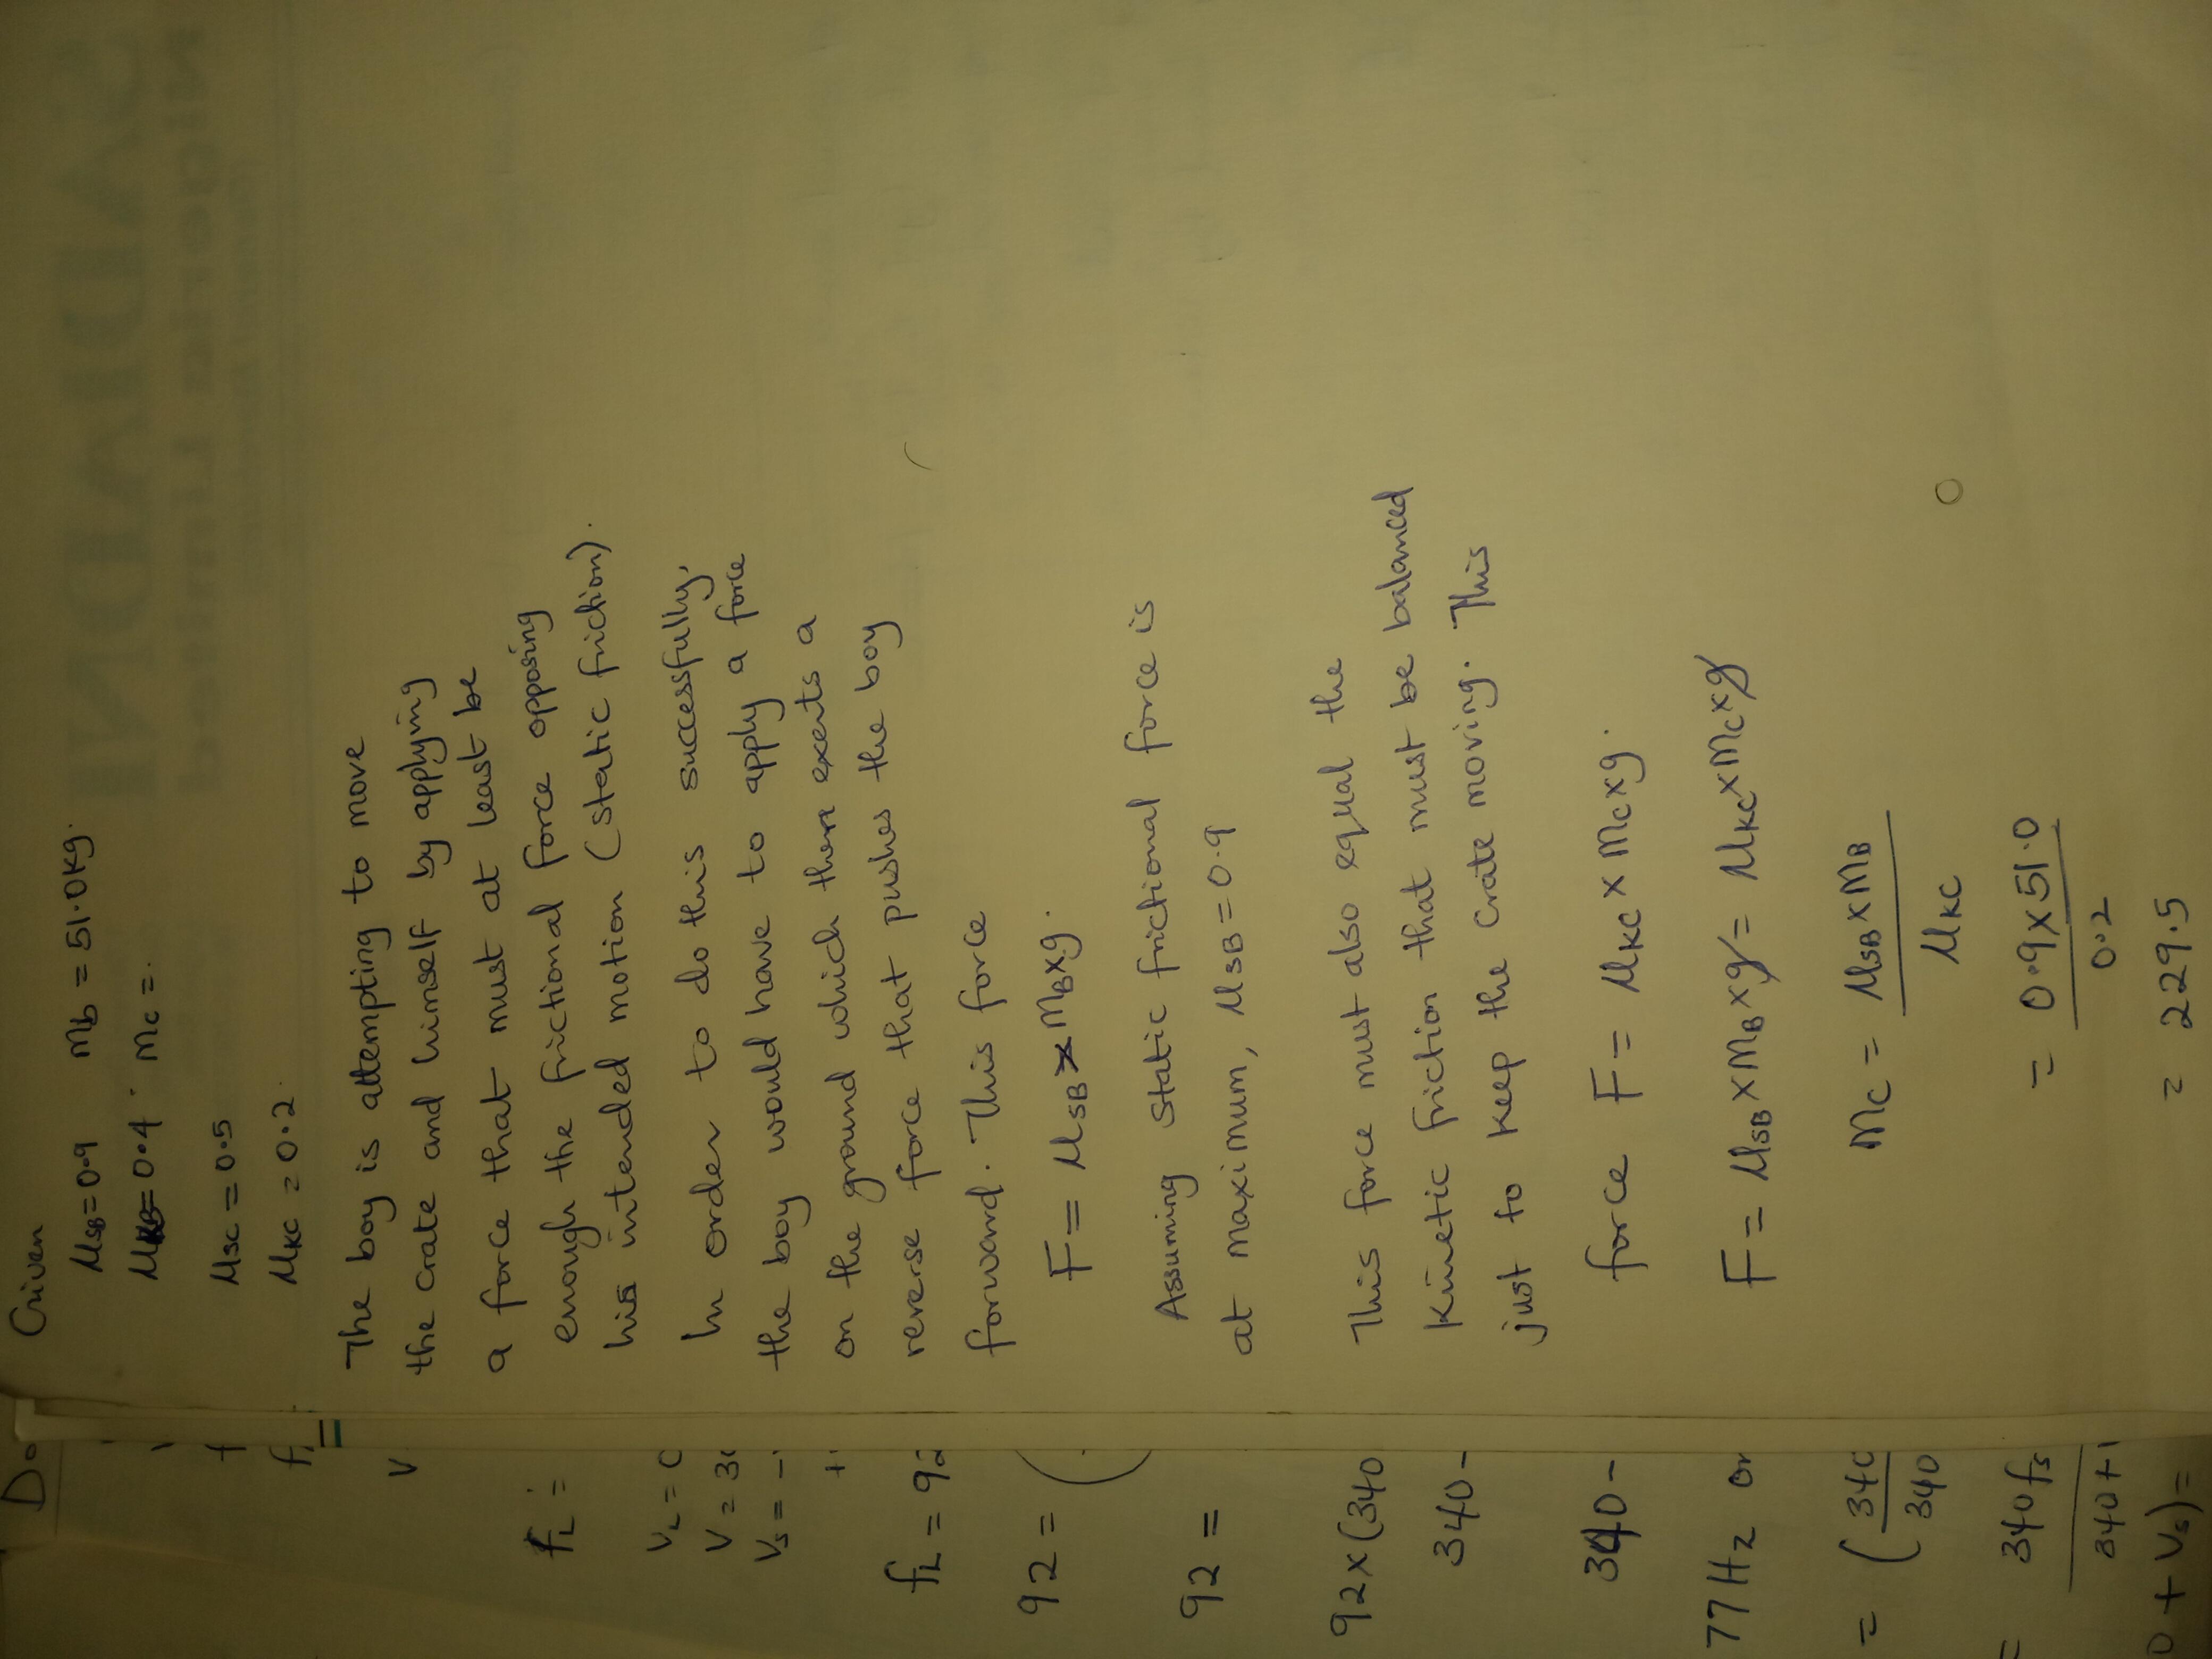 Given
μSB = 0.9 mb = 51.0kg.
μKB = 0.4 mc =.
μSC = 0.5
μKC = 0.2.
The boy is attempting to move
the crate and himself by applying
a force that must at least be
enough the frictional force opposing
his intended motion (static friction).
In order to do this successfully,
the boy would have to apply a force
on the ground which then exerts a
reverse force that pushes the boy
forward. This force
F = μSB x MB x g.
Assuming static frictional force is
at maximum, μSB = 0.9
This force must also equal the
kinetic friction that must be balanced
just to keep the crate moving. This
force F = μKC x MC x g.
F = μSB x MB x g = μKC x MC x g
MC = μSB x MB
μKC
= 0.9 x 51.0
0.2
= 229.5
fL =
VL =
VS = -
fL = 92
92 =
92 =
92 x (340
340 -
340 -
77 Hz or
= ( 340
340
= 340 fs
340 +
+ Vs) =